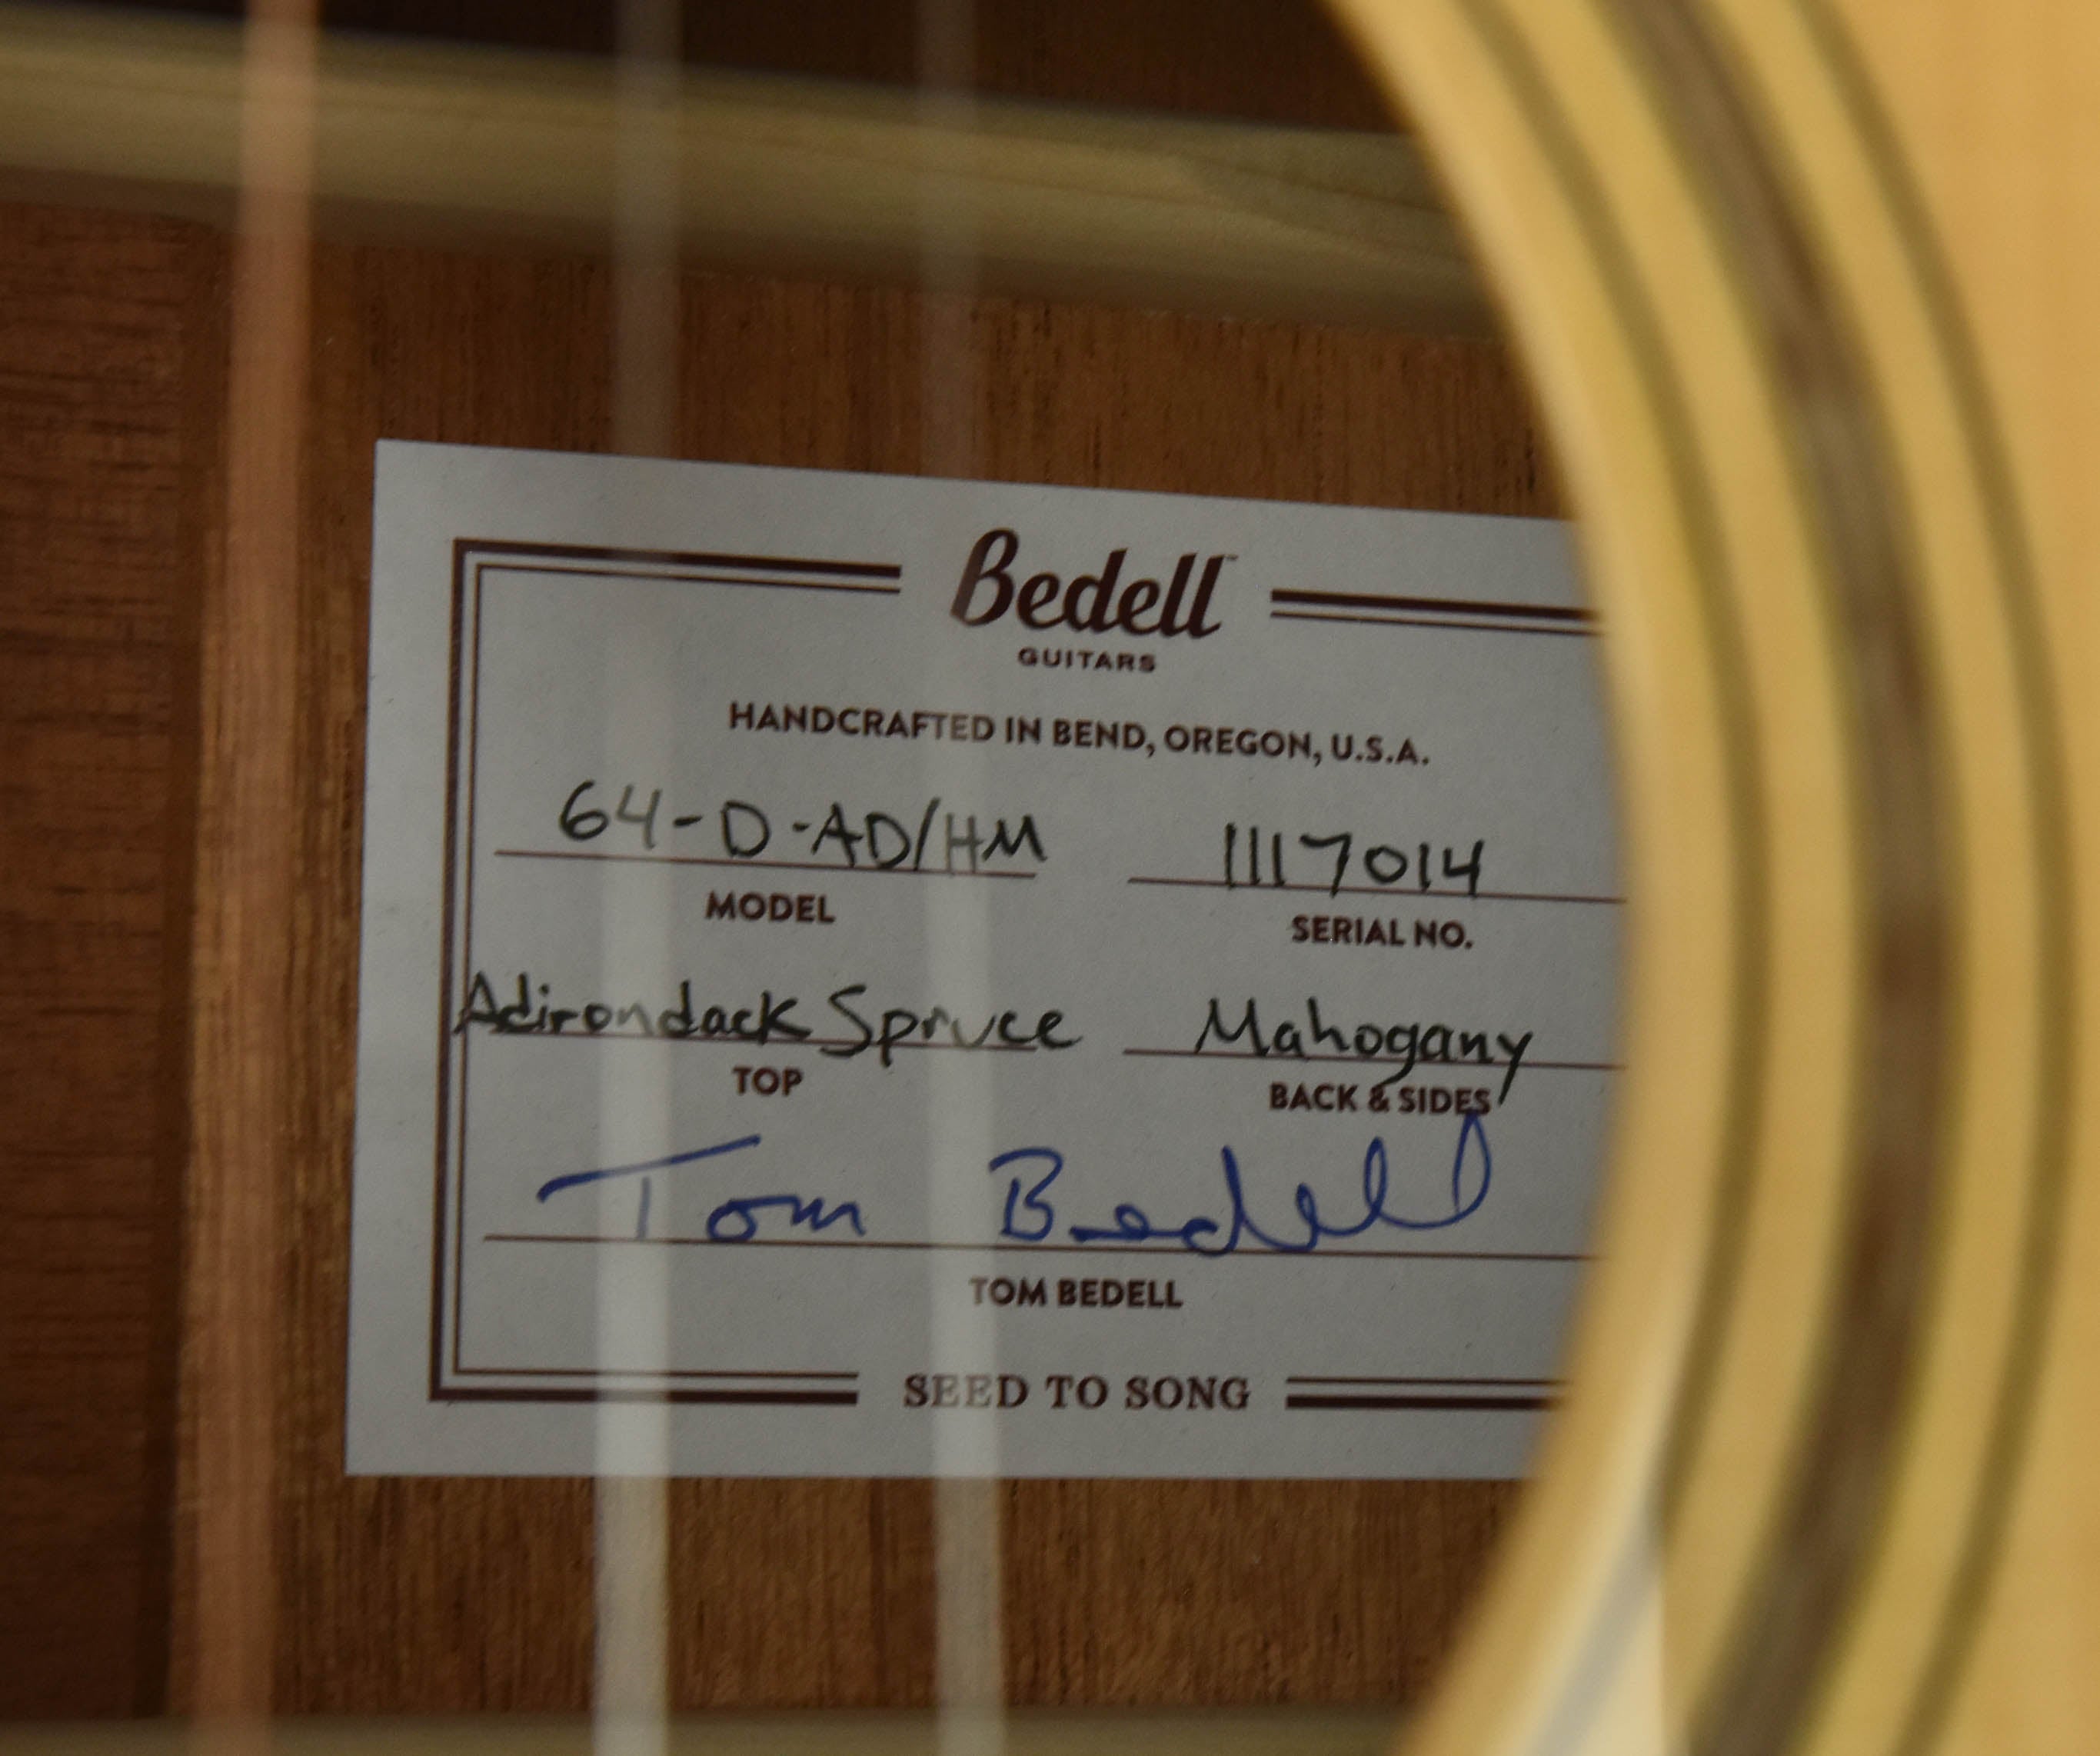 Bedell™
GUITARS
HANDCRAFTED IN BEND, OREGON, U.S.A.
64-D-AD/HM 1117014
MODEL SERIAL NO.
Adirondack Spruce Mahogany
TOP BACK & SIDES
Tom Bedell
TOM BEDELL
SEED TO SONG